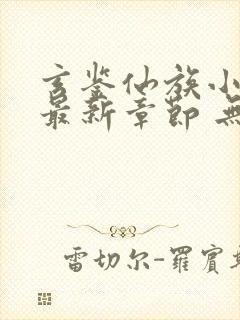 玄鉴仙族小
最新章節 無
雷切尔-羅賓斯